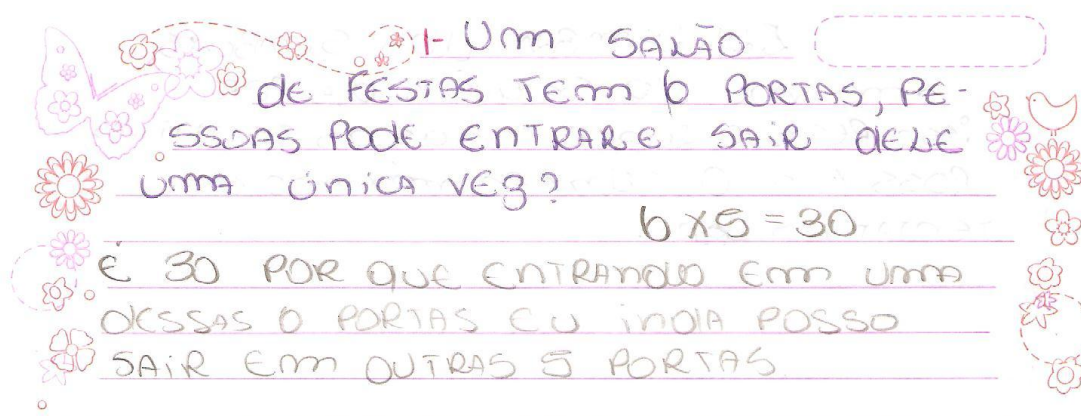 1- Um SALÃO
de FESTAS TEm 6 PORTAS, PE-
SSOAS PODE ENTRAR E SAIR DELE
UmA ÚNICA VEZ?
6 x 5 = 30
É 30 POR QUE ENTRANDO Em UmA
DESSAS 6 PORTAS EU INDA POSSO
SAIR Em OUTRAS 5 PORTAS